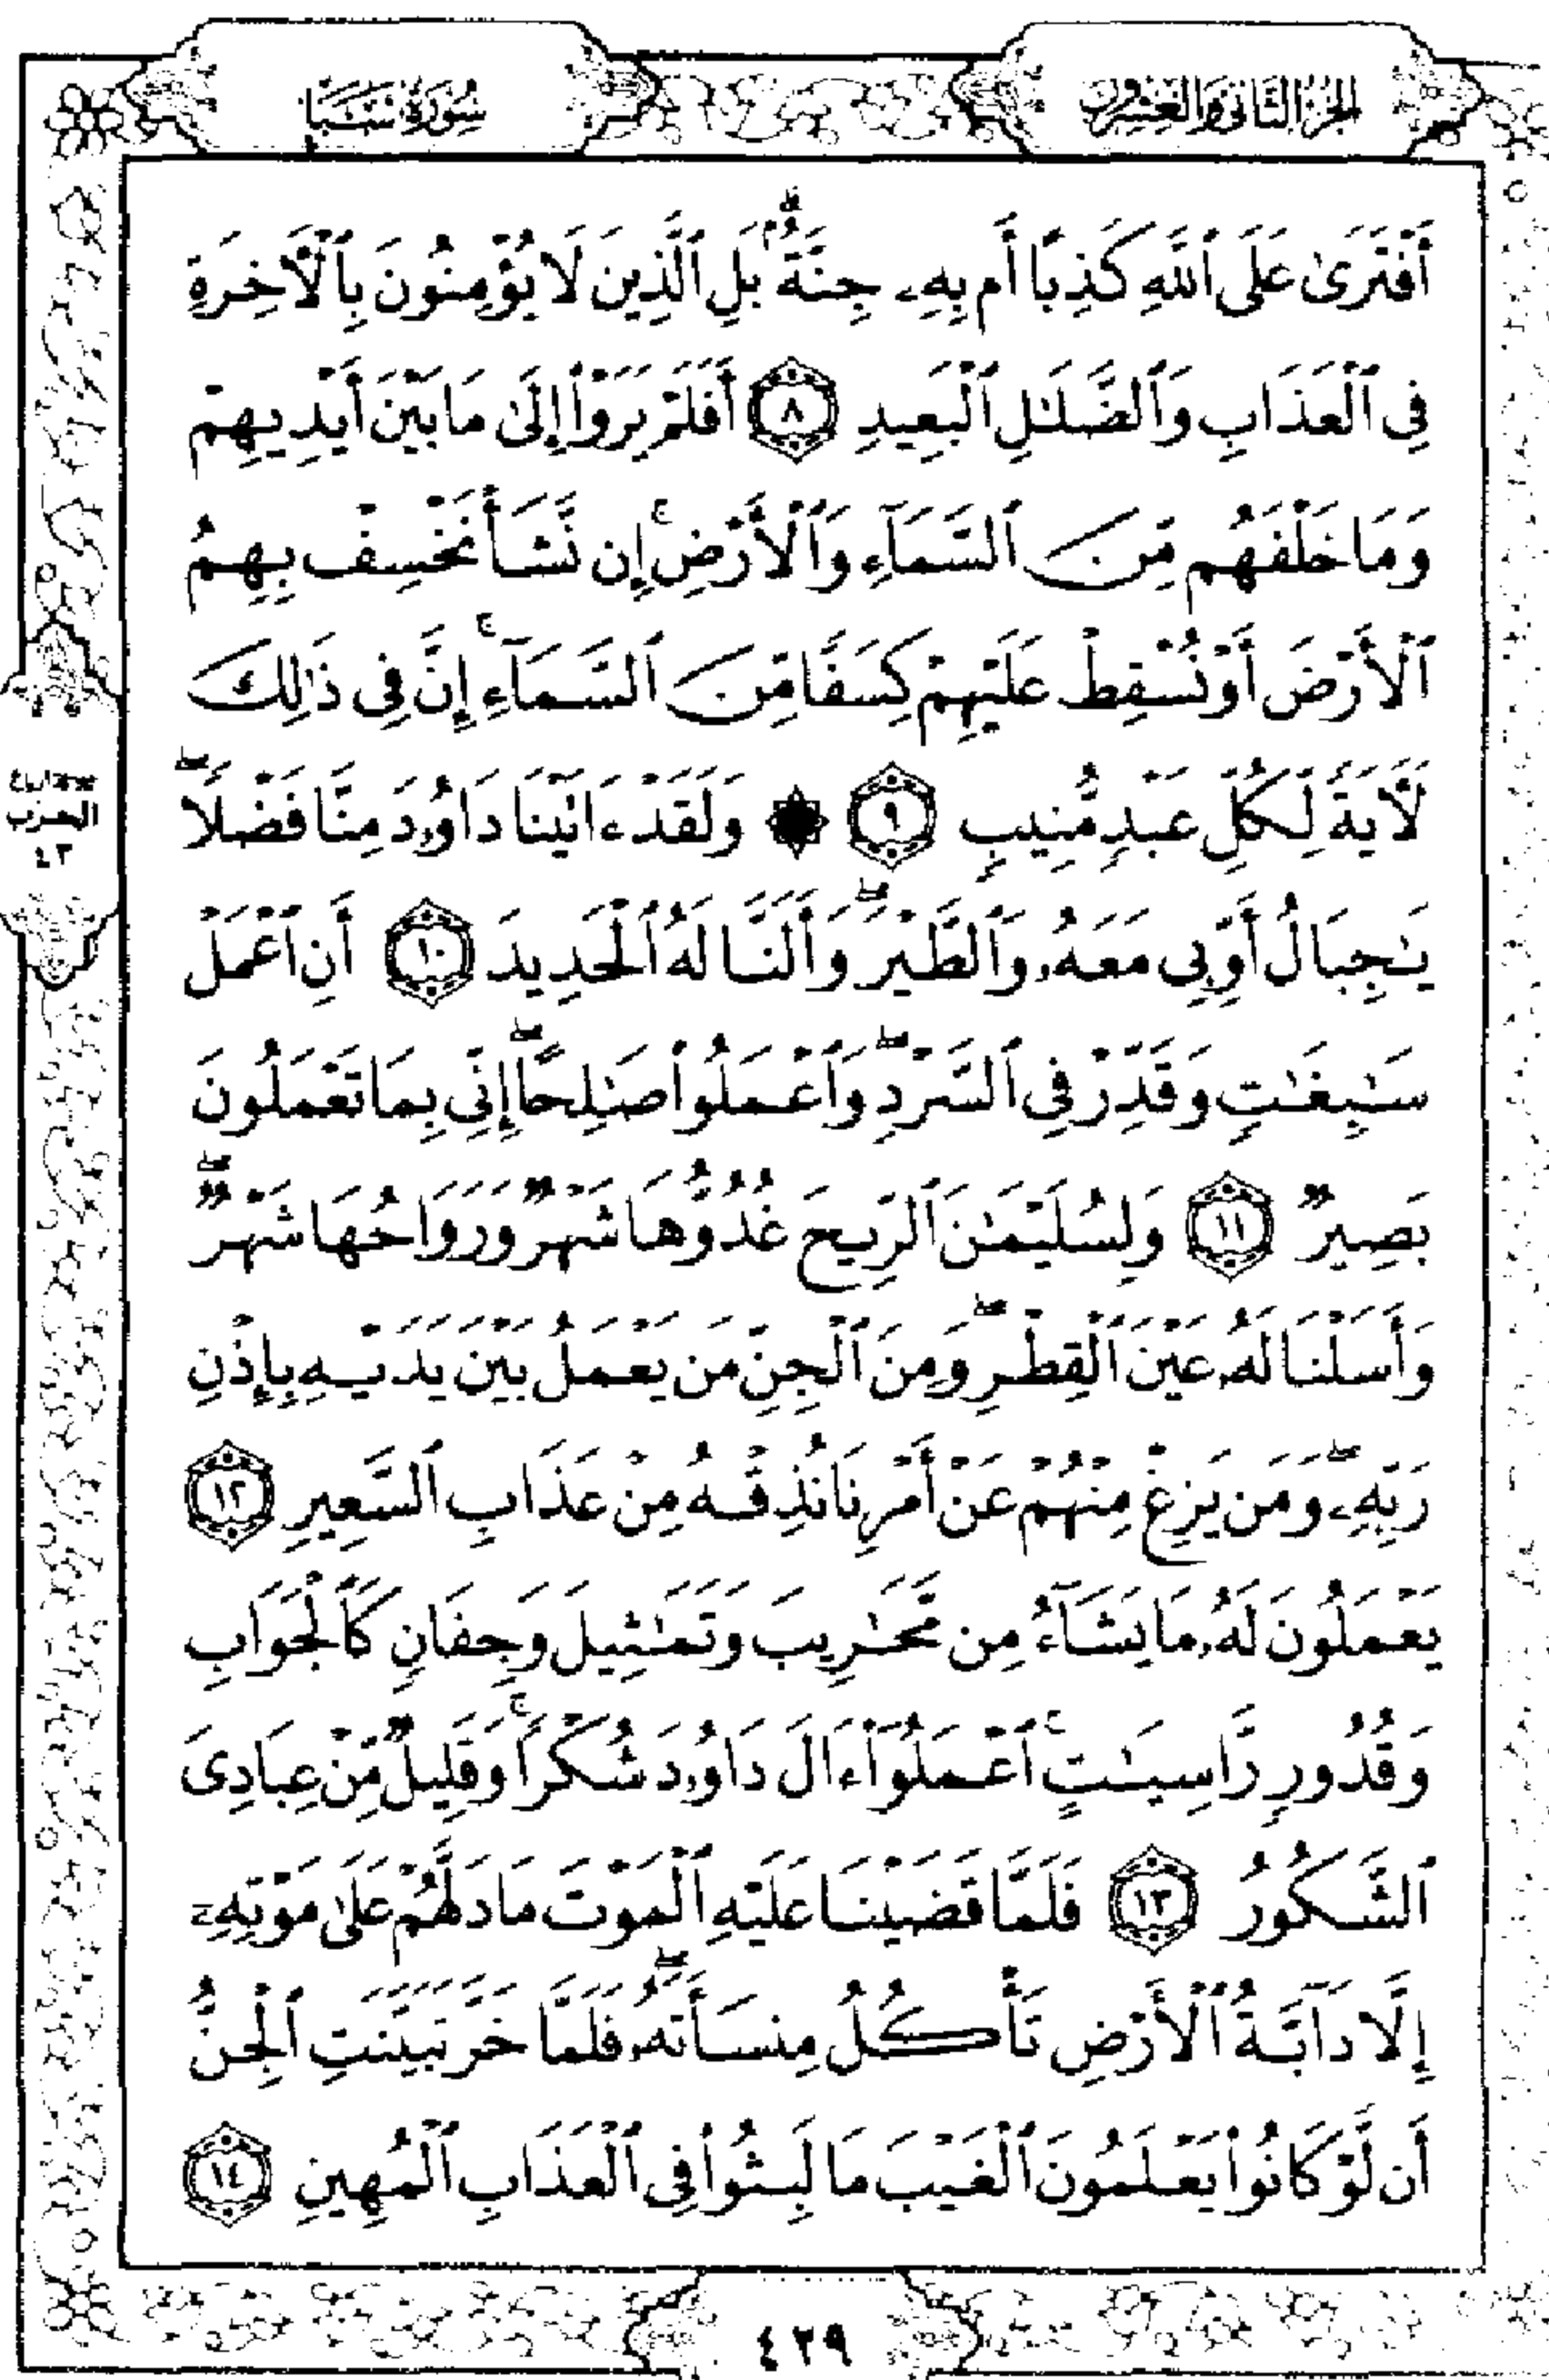 الجزء الثاني والعشرون
سورة سبأ
أَفْتَرَىٰ عَلَى ٱللَّهِ كَذِبًا أَم بِهِۦ جِنَّةٌۢ ۗ بَلِ ٱلَّذِينَ لَا يُؤْمِنُونَ بِٱلْأَخِرَةِ
فِى ٱلْعَذَابِ وَٱلضَّلَـٰلِ ٱلْبَعِيدِ ٨ أَفَلَمْ يَرَوْا۟ إِلَىٰ مَا بَيْنَ أَيْدِيهِمْ
وَمَا خَلْفَهُم مِّنَ ٱلسَّمَآءِ وَٱلْأَرْضِ ۚ إِن نَّشَأْ نَخْسِفْ بِهِمُ
ٱلْأَرْضَ أَوْ نُسْقِطْ عَلَيْهِمْ كِسَفًا مِّنَ ٱلسَّمَآءِ ۚ إِنَّ فِى ذَٰلِكَ
لَـَٔايَةً لِّكُلِّ عَبْدٍ مُّنِيبٍ ٩ ۞ وَلَقَدْ ءَاتَيْنَا دَاوُۥدَ مِنَّا فَضْلًا ۖ
يَـٰجِبَالُ أَوِّبِى مَعَهُۥ وَٱلطَّيْرَ ۖ وَأَلَنَّا لَهُ ٱلْحَدِيدَ ١٠ أَنِ ٱعْمَلْ
سَـٰبِغَـٰتٍ وَقَدِّرْ فِى ٱلسَّرْدِ ۖ وَٱعْمَلُوا۟ صَـٰلِحًا ۖ إِنِّى بِمَا تَعْمَلُونَ
بَصِيرٌ ١١ وَلِسُلَيْمَـٰنَ ٱلرِّيحَ غُدُوُّهَا شَهْرٌ وَرَوَاحُهَا شَهْرٌ ۖ
وَأَسَلْنَا لَهُۥ عَيْنَ ٱلْقِطْرِ ۖ وَمِنَ ٱلْجِنِّ مَن يَعْمَلُ بَيْنَ يَدَيْهِ بِإِذْنِ
رَبِّهِۦ ۖ وَمَن يَزِغْ مِنْهُمْ عَنْ أَمْرِنَا نُذِقْهُ مِنْ عَذَابِ ٱلسَّعِيرِ ١٢
يَعْمَلُونَ لَهُۥ مَا يَشَآءُ مِن مَّحَـٰرِيبَ وَتَمَـٰثِيلَ وَجِفَانٍ كَٱلْجَوَابِ
وَقُدُورٍ رَّاسِيَـٰتٍ ۚ ٱعْمَلُوٓا۟ ءَالَ دَاوُۥدَ شُكْرًا ۚ وَقَلِيلٌ مِّنْ عِبَادِىَ
ٱلشَّكُورُ ١٣ فَلَمَّا قَضَيْنَا عَلَيْهِ ٱلْمَوْتَ مَا دَلَّهُمْ عَلَىٰ مَوْتِهِۦٓ
إِلَّا دَآبَّةُ ٱلْأَرْضِ تَأْكُلُ مِنسَأَتَهُۥ ۖ فَلَمَّا خَرَّ تَبَيَّنَتِ ٱلْجِنُّ
أَن لَّوْ كَانُوا۟ يَعْلَمُونَ ٱلْغَيْبَ مَا لَبِثُوا۟ فِى ٱلْعَذَابِ ٱلْمُهِينِ ١٤
الحزب
٤٣
٤٢٩